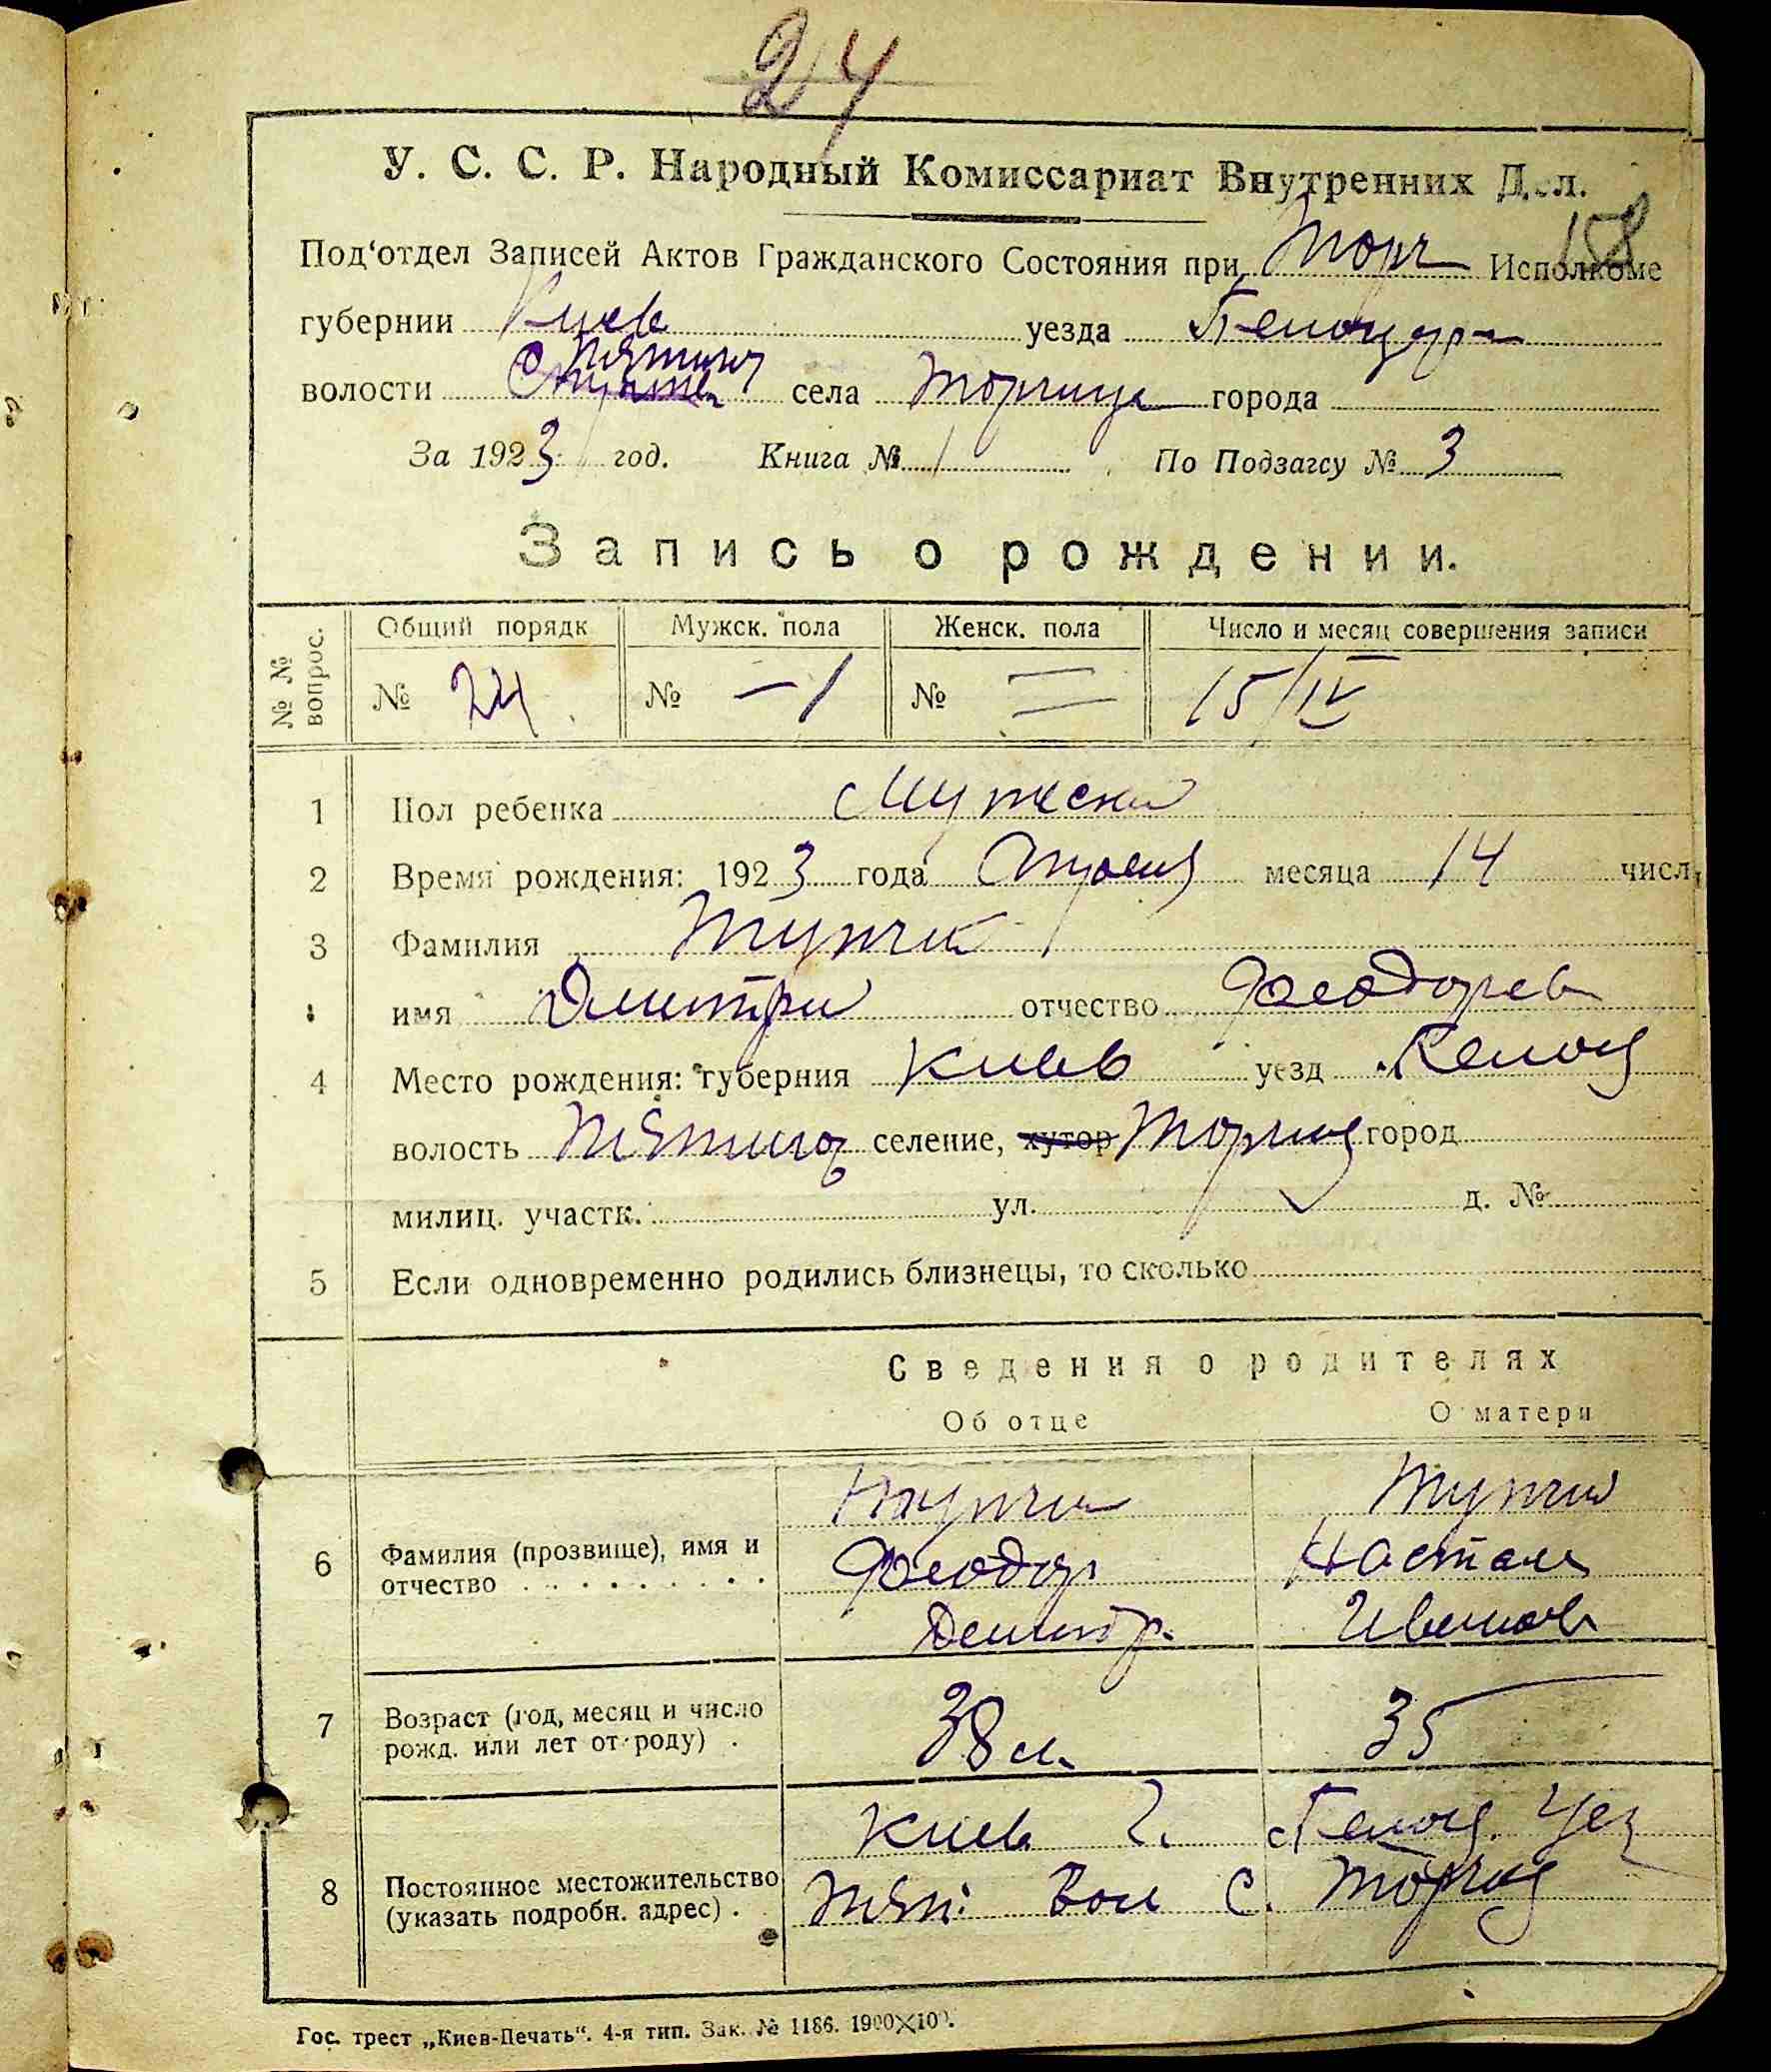 24
У. С. С. Р. Народный Комиссариат Внутренних Дел.
158
Под‘отдел Записей Актов Гражданского Состояния при Торч Исполкоме
губернии Киев уезда Белоцер
волости Пятигор села Торчица города
За 1923 год. Книга № 1 По Подзагсу № 3
Запись о рождении.
№ № вопрос. Общий порядк Мужск. пола Женск. пола Число и месяц совершения записи
№ 24 № — 1 № = 15/IV
1 Пол ребенка Мужский
2 Время рождения: 1923 года Апреля месяца 14 числ
3 Фамилия Тупчий
имя Дмитрий отчество Феодоров
4 Место рождения: губерния Киев уезд Белоц
волость Пятигор селение, хутор Торчиц город
милиц. участк. ул. д. №
5 Если одновременно родились близнецы, то сколько
Сведения о родителях
Об отце О матери
6 Фамилия (прозвище), имя и отчество
Тупчий Тупчий
Феодор Настася
Димитр. Иванов
7 Возраст (год, месяц и число рожд. или лет от роду)
38 л. 35
8 Постоянное местожительство (указать подробн. адрес)
Киев г. Белоц. уез
Пят: Вол с. Торчиц
Гос. трест „Киев-Печать“. 4-я тип. Зак. № 1186. 1900×100.